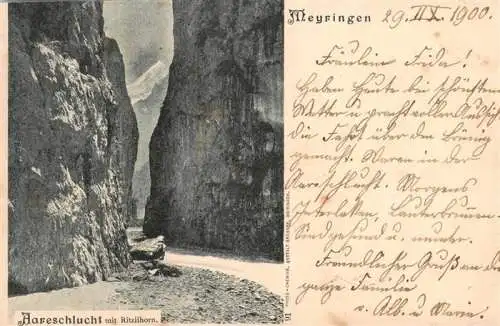 Meyringen 29. IX. 1900.
Fräulein Frida!
Haben Heute bei schönstem
Wetter u. prachtvoller Aussicht
die Fahrt über den Brünig
gemacht. Waren in der
Aareschlucht. Morgens
Interlaken, Lauterbrunnen.
Sind gesund u. munter.
Freundlicher Gruß an die
ganze Familie
v. Alb. u. Marie.
Aareschlucht mit Ritzlihorn.